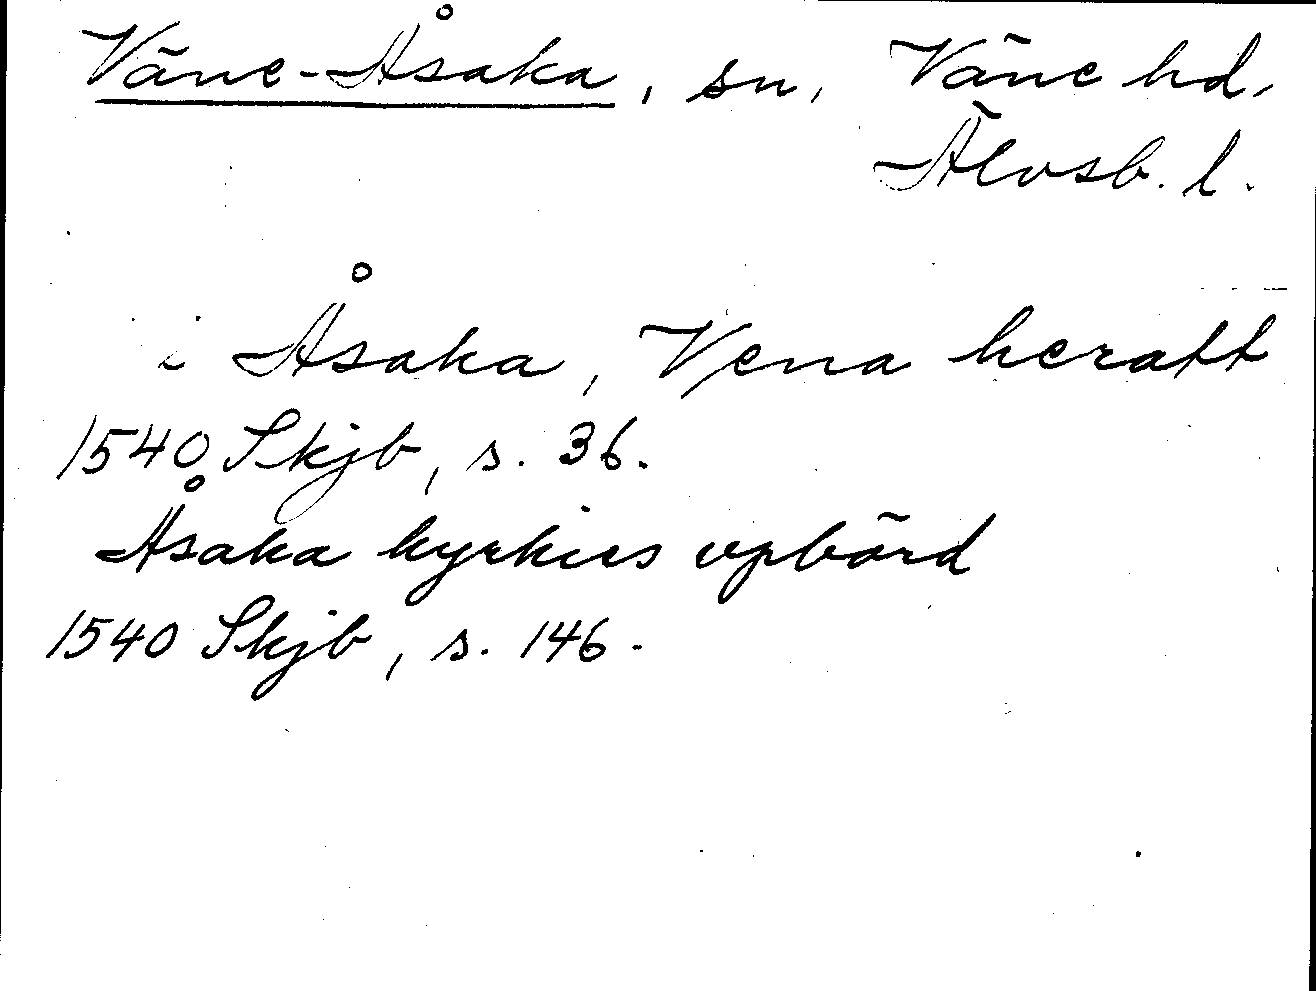 Väne-Åsaka, sn, Väne hd,
Älvsb. l.
i Åsaka, Vena heratt
1540 Skjb, s. 36.
Åsaka kyrkies vpbörd
1540 Skjb, s. 146.